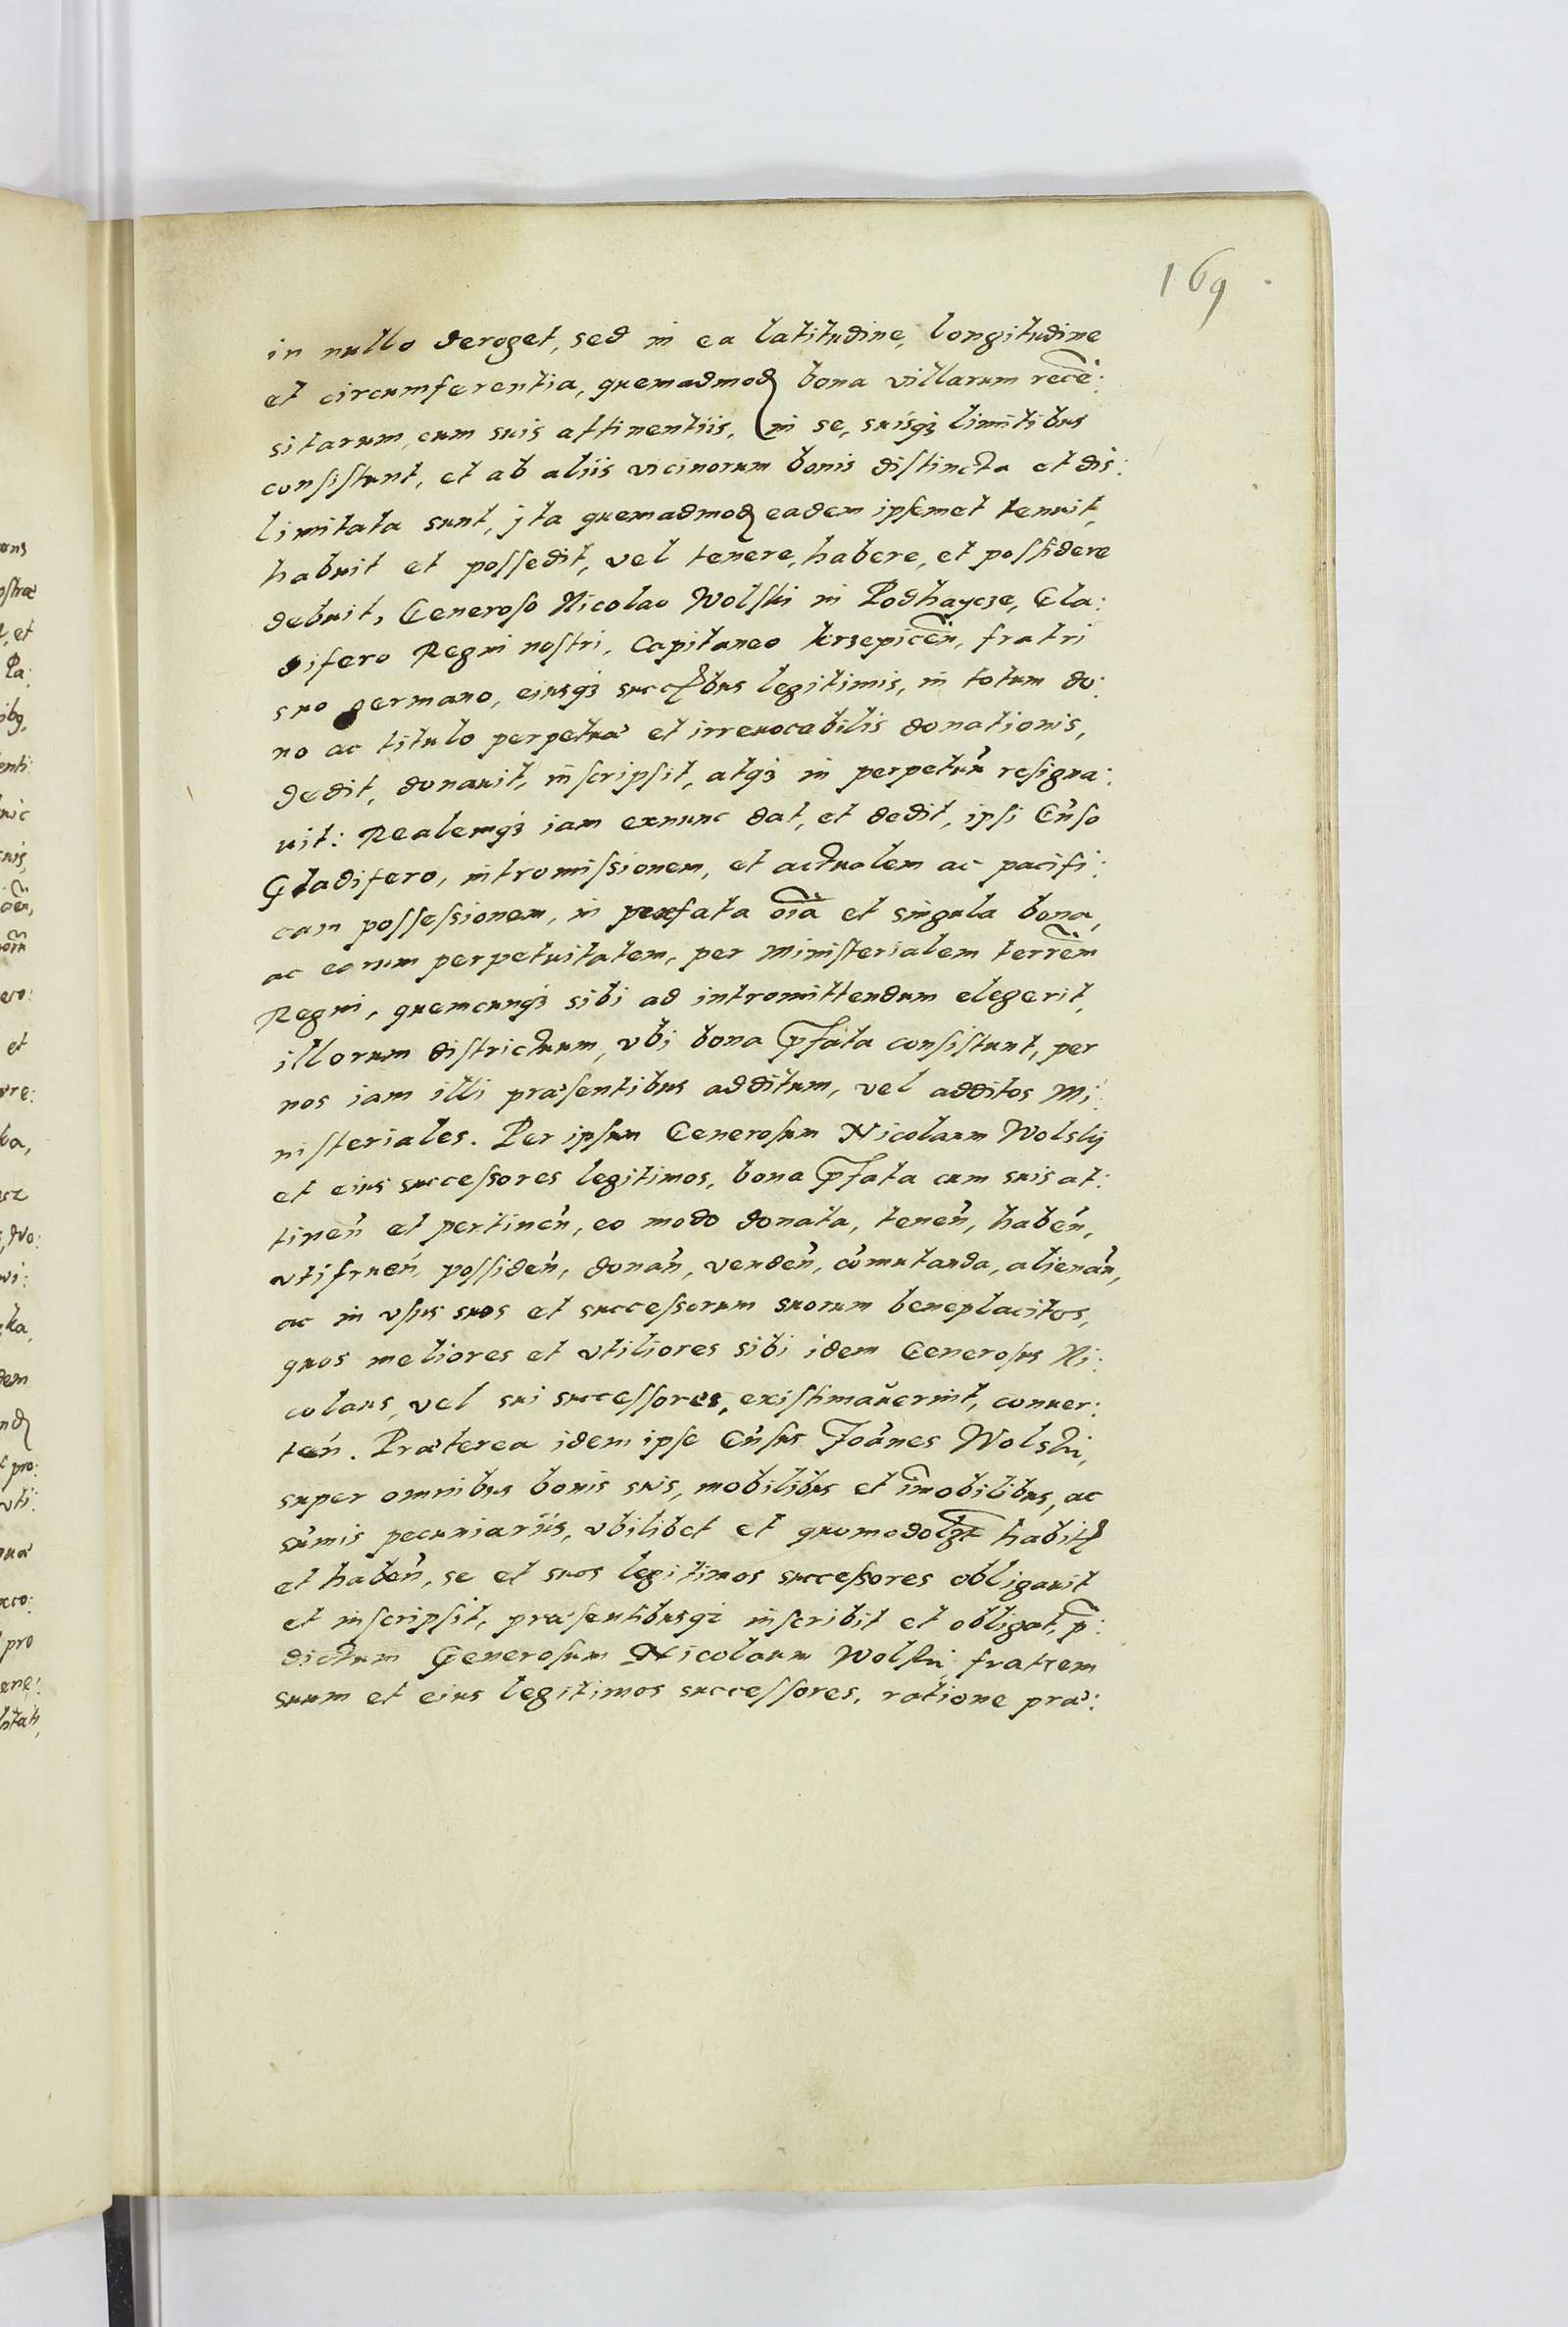 169
in nullo deroget, sed in ea latitudine, longitudine
et circumferentia, quemadmodꝫ bona villarum recẽ:
sitarum, cum suis attinentiis, in se, suisqꝫ limitibus
consistunt, et ab aliis vicinorum bonis distincta et dis:
limitata sunt, jta quemadmodꝫ eadem ipsemet tenuit,
habuit et possedit, vel tenere, habere, et possidere
debuit, Generoso Nicolao Wolski in Podhaycze, Gla:
difero Regni nostri, Capitaneo krzepiceñ, fratri
suo germano, eiusqꝫ succꝭbus legitimis, in totum do:
no ac titulo perpetuæ et irreuocabilis donationis,
dedit, donauit, inscripsit, atqꝫ in perpetuũ resigna:
uit: Realemqꝫ iam exnunc dat, et dedit, ipsi Gñso
Gladifero, intromissionem, et actualem ac pacifi:
cam possessionem, in præfata oĩa et singula bona,
ac eorum perpetuitatem, per Ministerialem terrẽm
Regni, quemcunqꝫ sibi ad intromittendum elegerit,
illorum districtuum, vbi bona p̃fata consistunt, per
nos iam illi præsentibus additum, vel additos Mi:
nisteriales. Per ipsum Generosum Nicolaum Wolskij
et eius successores legitimos, bona p̃fata cum suis at:
tineñ et pertineñ, eo modo donata, teneñ, habeñ,
vtifrueñ, possideñ, donañ, vendeñ, cõmutanda, alienañ,
ac in vsus suos et successorum suorum beneplacitos,
quos meliores et vtiliores sibi idem Generosus Ni:
colaus, vel sui successores, existimauerint, conuer:
teñ. Præterea idem ipse Gñsus Joãnes Wolski,
super omnibus bonis suis, mobilibus et im̃obilibus, ac
sum̃is pecuniariis, vbilibet et quomodolꝫt habitꝭ
et habeñ, se et suos legitimos successores obligauit
et inscripsit, præsentibusqꝫ inscribit et obligat, p̃:
dictum Generosum Nicolaum Wolski fratrem
suum et eius legitimos successores, ratione præ: